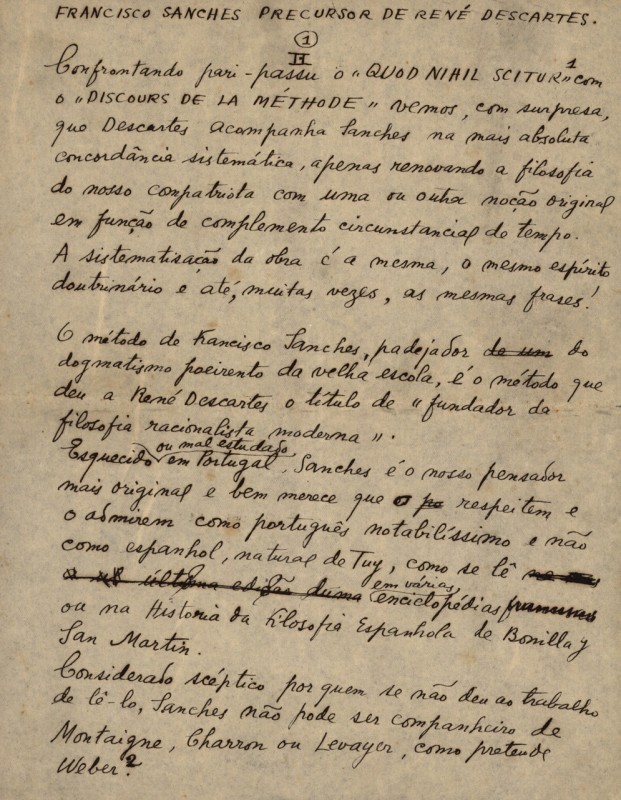 FRANCISCO SANCHES PRECURSOR DE RENÉ DESCARTES.
1
II
Confrontando pari-passu o "QUOD NIHIL SCITUR"¹ com
o "DISCOURS DE LA MÉTHODE" vemos, com surpresa,
que Descartes acompanha Sanches na mais absoluta
concordância sistemática, apenas renovando a filosofia
do nosso compatriota com uma ou outra noção original
em função de complemento circunstancial de tempo.
A sistematisação da obra é a mesma, o mesmo espírito
doutrinário e até, muitas vezes, as mesmas frases!
O método de Francisco Sanches, padejador de um do
dogmatismo poeirento da velha escola, é o método que
deu a René Descartes o título de "fundador da
filosofia racionalista moderna".
ou mal estudado
Esquecido em Portugal, Sanches é o nosso pensador
mais original e bem merece que o respeitem e
o admirem como português notabilíssimo e não
como espanhol, natural de Tuy, como se lê
em várias
última edição duma enciclopédias
ou na Historia da Filosofia Espanhola de Bonilla y
San Martin.
Considerado scéptico por quem se não deu ao trabalho
de lê-lo, Sanches não pode ser companheiro de
Montaigne, Charron ou Levayer, como pretende
Weber.²